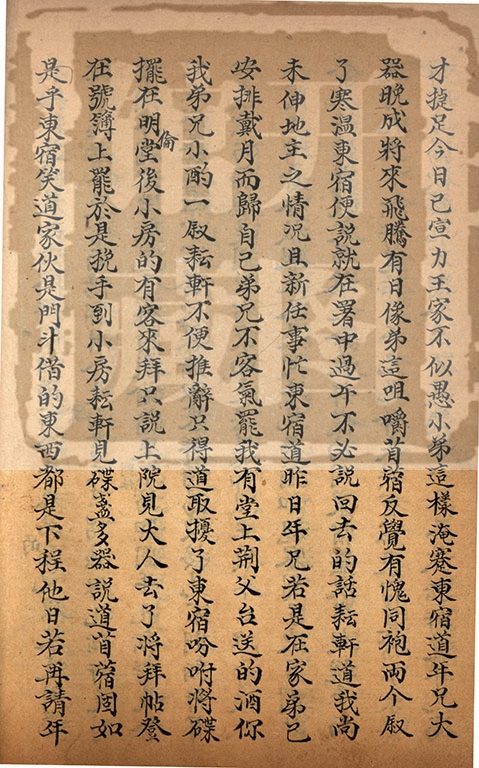 才捷足今日已宣力王家不似愚小弟這樣淹蹇東宿道年兄大
器晚成將來飛騰有日像弟這咀嚼苜蓿反覺有愧同袍兩个叙
了寒温東宿便說就在署中過午不必說回去的話耘軒道我尚
未伸地主之情况且新任事忙東宿道昨日年兄若是在家弟已
安排戴月而歸自己弟兄不客氣罷我有堂上荆父台送的酒你
我弟兄小酌一叙耘軒不便推辭只得道取擾了東宿吩咐將碟
擺在明倫堂後小房的有客來拜只說上院見大人去了將拜帖登
在號簿上罷於是挽手到小房耘軒見碟盞多器說道苜蓿固如
是乎東宿笑道家伙是門斗借的東西都是下程他日若再請年